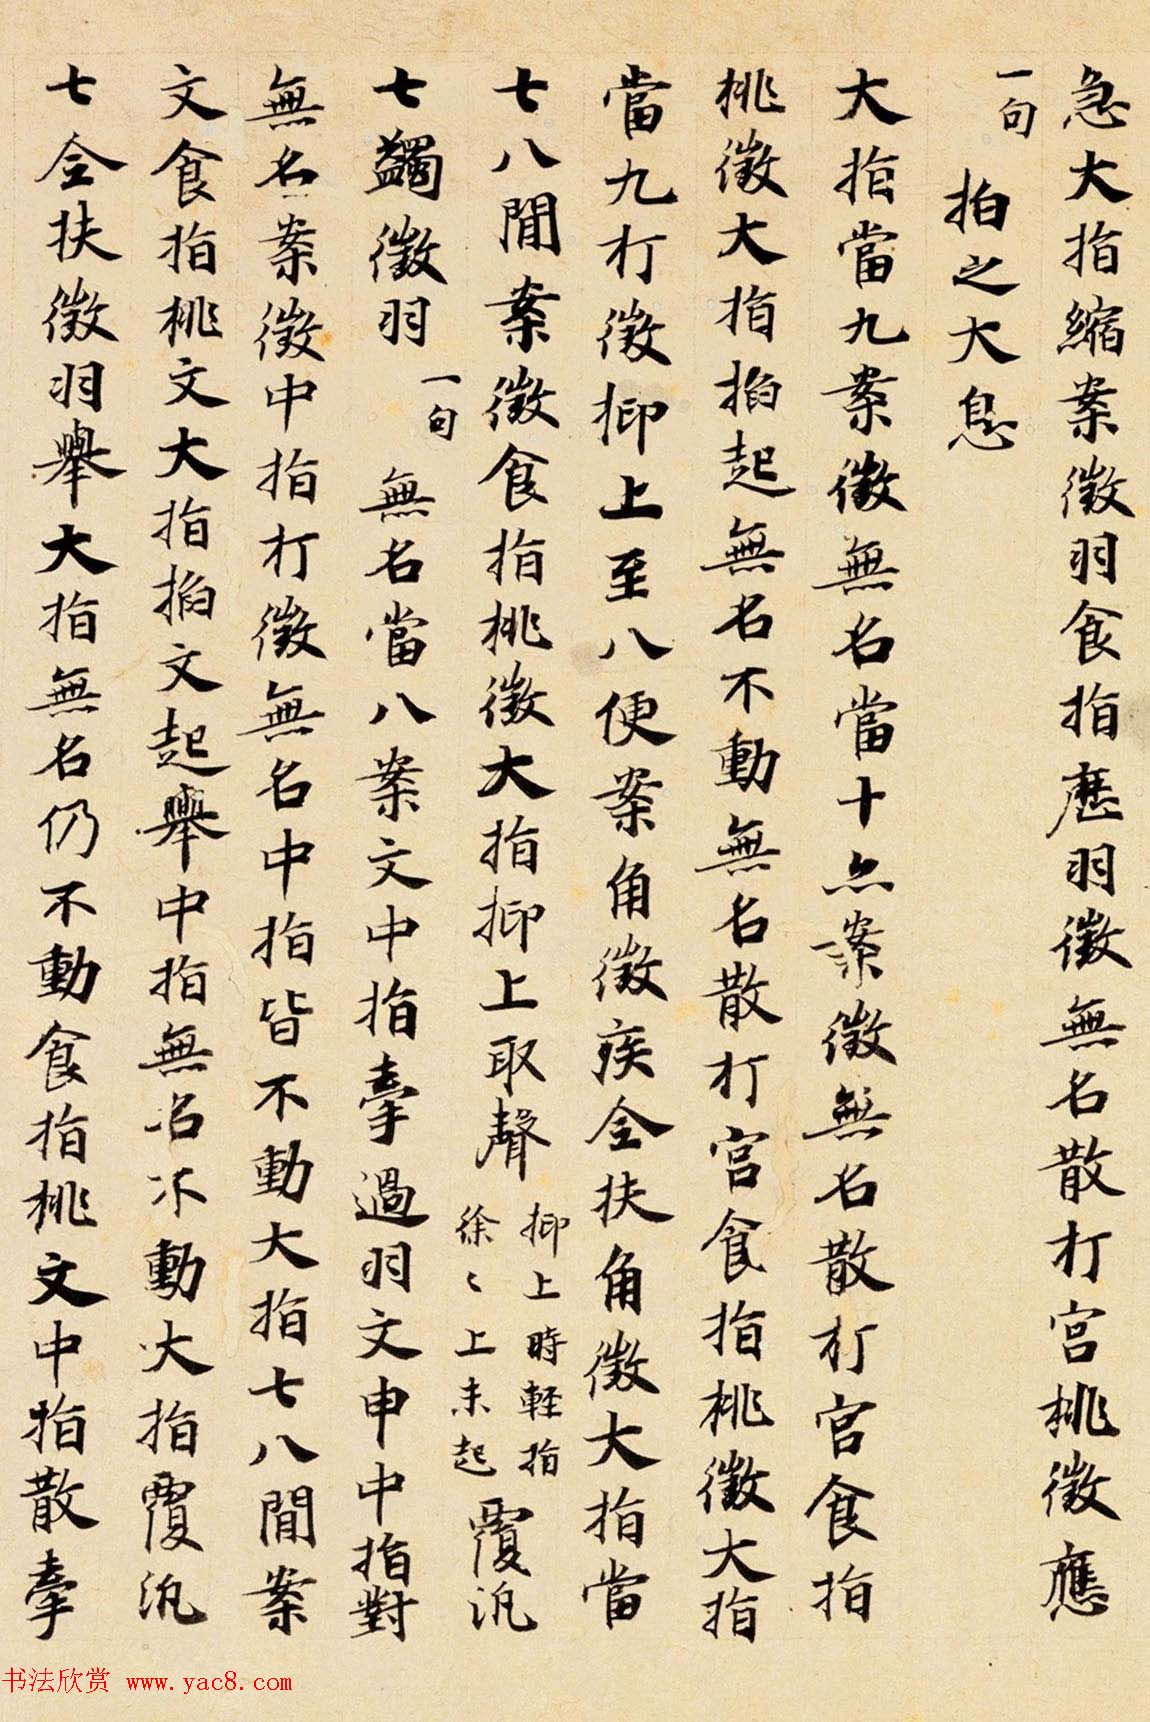 急大指縮案徵羽食指歷羽徵無名散打宮挑徵應
一句　拍之大息
大指當九案徵無名當十亦案徵無名散打宮食指
挑徵大指掐起無名不動無名散打宮食指挑徵大指
當九打徵抑上至八便案角徵疾全扶角徵大指當
七八間案徵食指挑徵大指抑上取聲抑上時輕指徐〻上未起覆汎
七蠲徵羽一句　無名當八案文中指牽過羽文申中指對
無名案徵中指打徵無名中指皆不動大指七八間案
文食指挑文大指掐文起舉中指無名不動大指覆汎
七全扶徵羽舉大指無名仍不動食指挑文中指散牽
书法欣赏 www.yac8.com